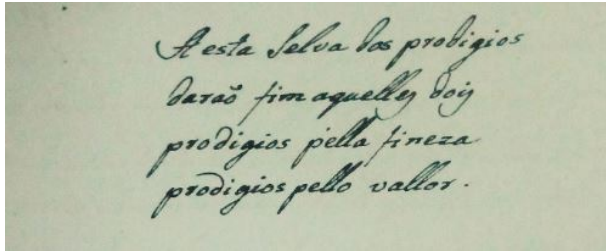 A esta Selva dos prodigios
daraõ fim aquelles dois
prodigios pella fineza
prodigios pello vallor.